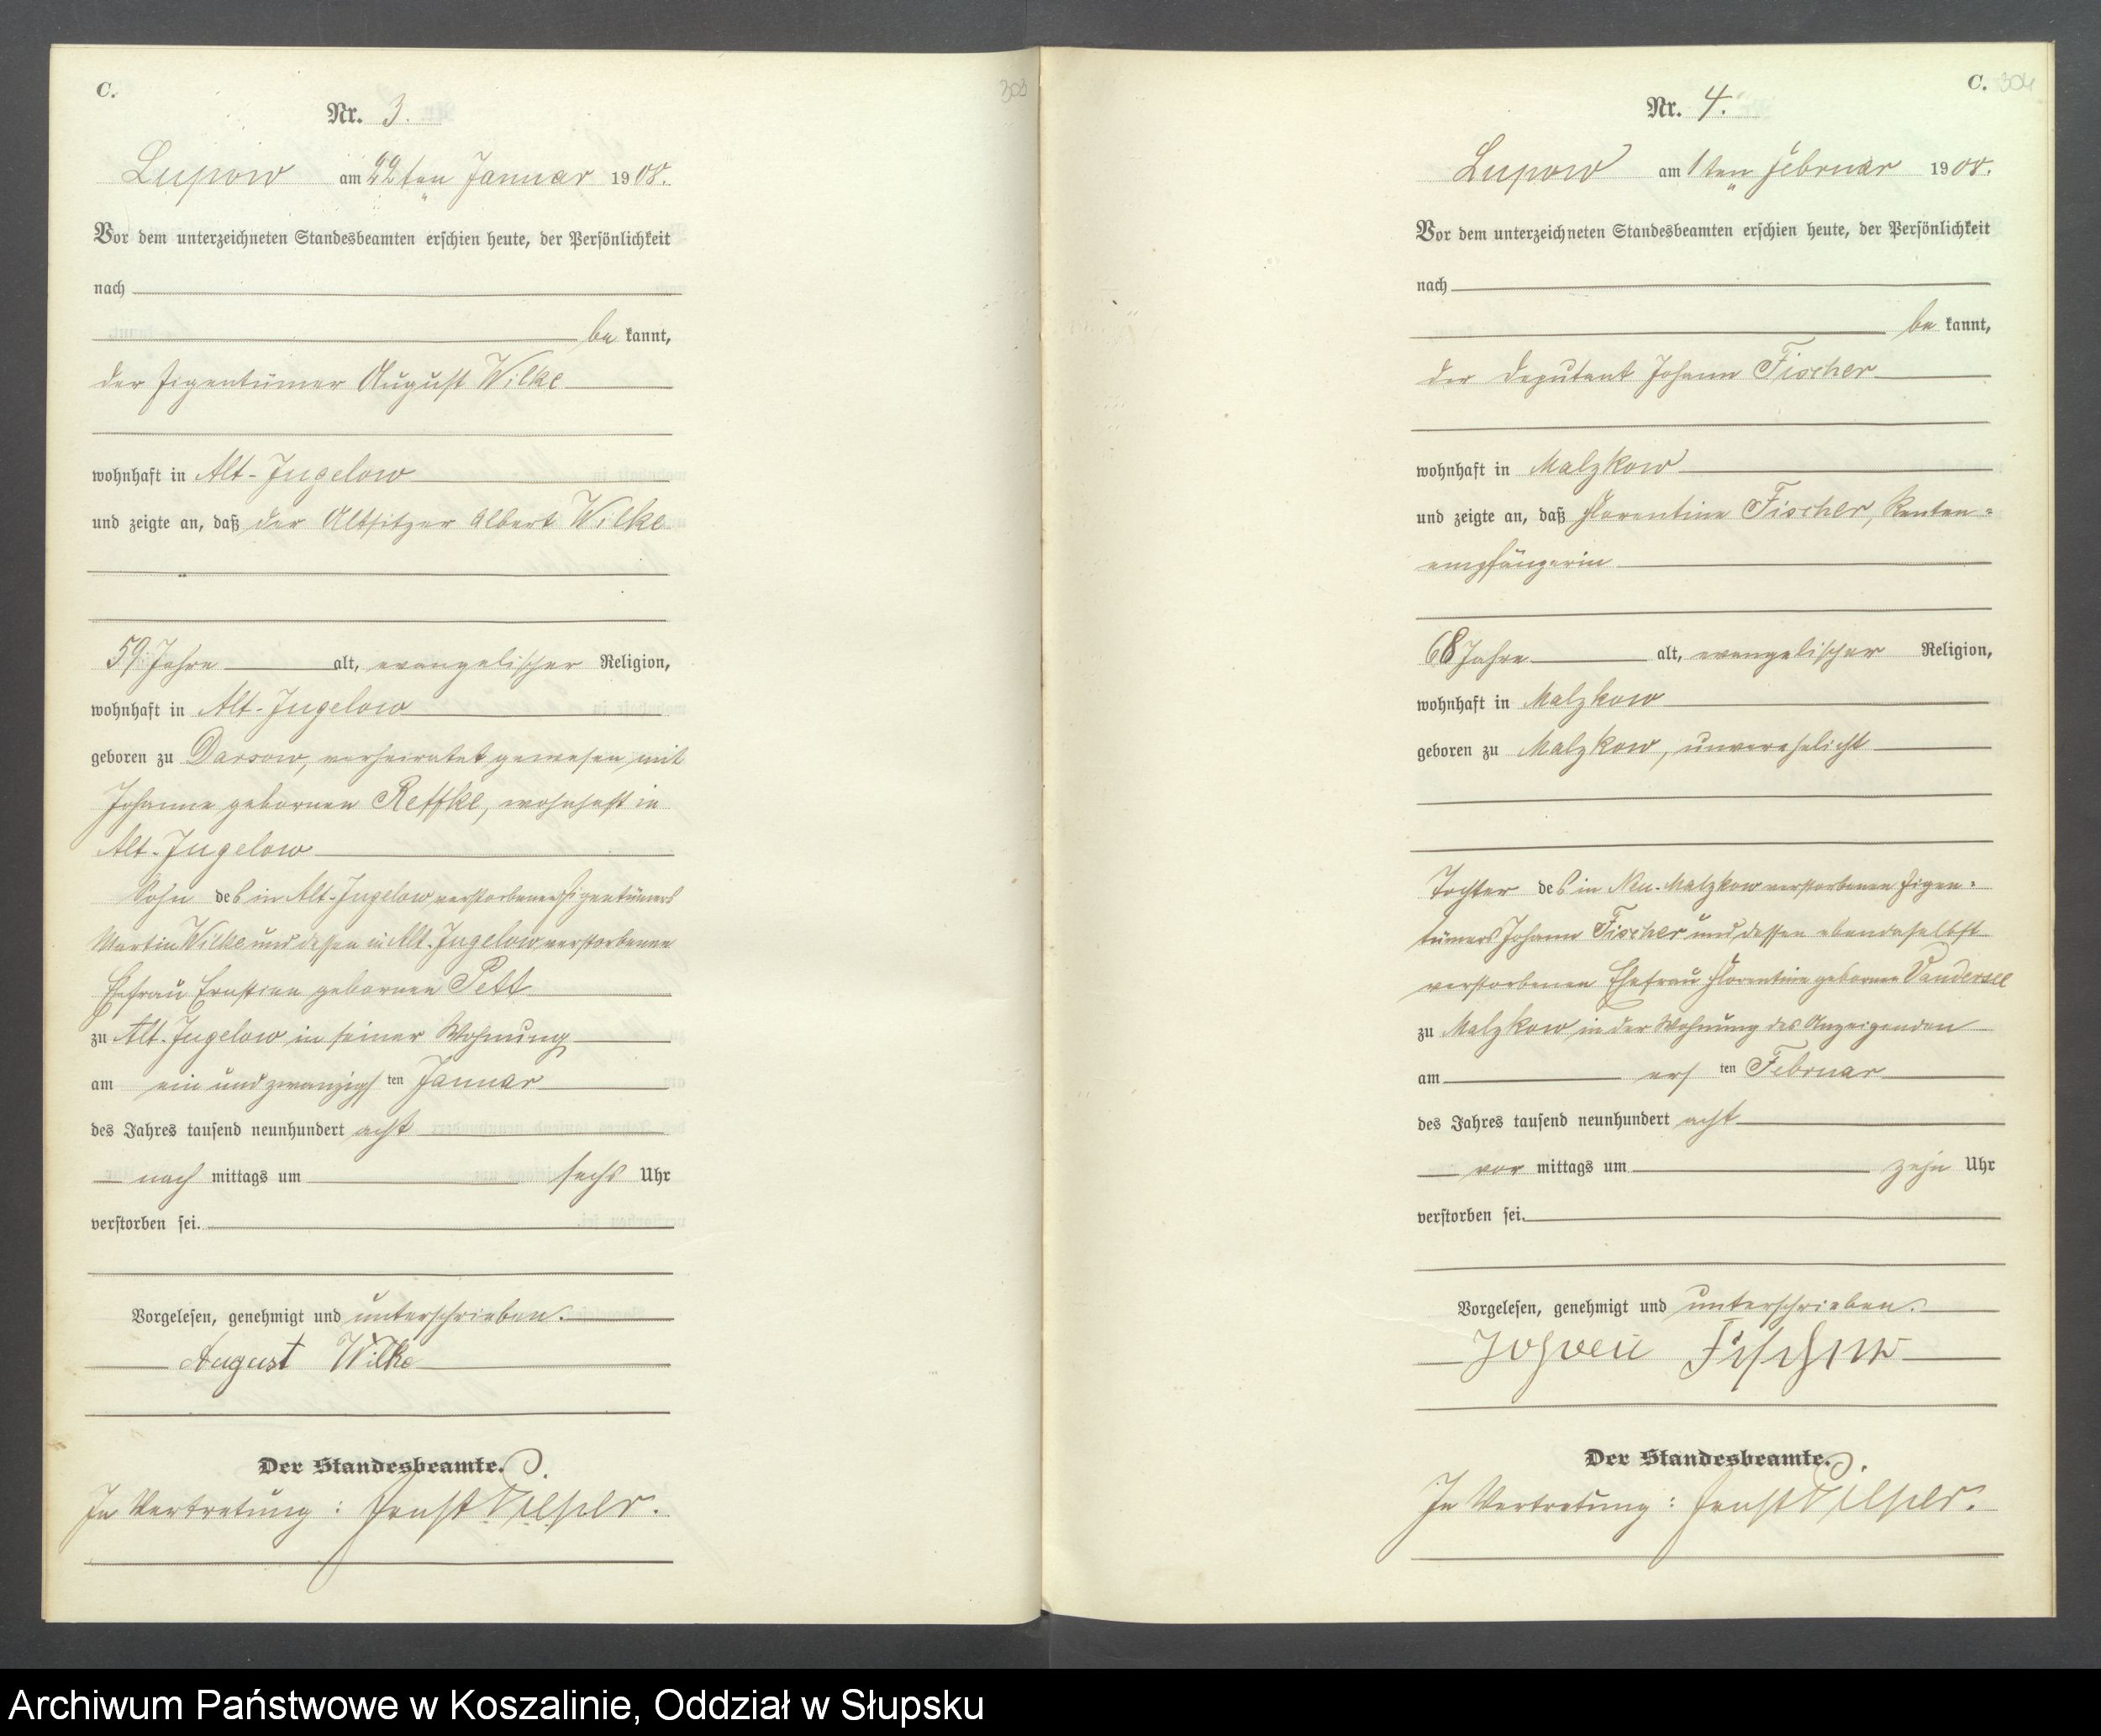 C.
303
Nr. 3.
Lupow am 22ten Januar 1908.
Vor dem unterzeichneten Standesbeamten erschien heute, der Persönlichkeit
nach
be kannt,
der Eigentümer August Wilke
wohnhaft in Alt-Jugelow
und zeigte an, daß der Altsitzer Albert Wilke
59 Jahre alt, evangelischer Religion,
wohnhaft in Alt-Jugelow
geboren zu Darsow, verheiratet gewesen mit
Johanne gebornen Reffke, wohnhaft in
Alt-Jugelow
Sohn des in Alt-Jugelow verstorbenen Eigentümers
Martin Wilke und dessen in Alt-Jugelow verstorbenen
Ehefrau gebornen
zu Alt-Jugelow in seiner Wohnung
am ein und zwanzigs ten Januar
des Jahres tausend neunhundert acht
nach mittags um sechs Uhr
verstorben sei.
Vorgelesen, genehmigt und unterschrieben.
August Wilke
Der Standesbeamte.
In Vertretung: Ernst
C. 304
Nr. 4.
Lupow am 1ten Februar 1908.
Vor dem unterzeichneten Standesbeamten erschien heute, der Persönlichkeit
nach
be kannt,
der Deputant Johann Fischer
wohnhaft in Malzkow
und zeigte an, daß Florentine Fischer, Renten=
empfängerin
68 Jahre alt, evangelischer Religion,
wohnhaft in Malzkow
geboren zu Malzkow, unverehelicht
Tochter des in Neu-Malzkow verstorbenen Eigen=
tümers Johann Fischer und dessen ebendaselbst
verstorbenen Ehefrau Florentine gebornen Vandersee
zu Malzkow in der Wohnung des Anzeigenden
am ers ten Februar
des Jahres tausend neunhundert acht
vor mittags um zehn Uhr
verstorben sei.
Vorgelesen, genehmigt und unterschrieben.
Johann Fischer
Der Standesbeamte.
In Vertretung: Ernst
Archiwum Państwowe w Koszalinie, Oddział w Słupsku